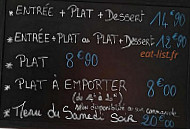 * ENTRÉE + PLAT + Dessert 14€90
* ENTRÉE + PLAT ou PLAT + Dessert 12€90
eat-list.fr
* PLAT 8€90
* PLAT À EMPORTER 8€00
selon disponibilité ou sur commande
* Menu du Samedi Soir 20€00